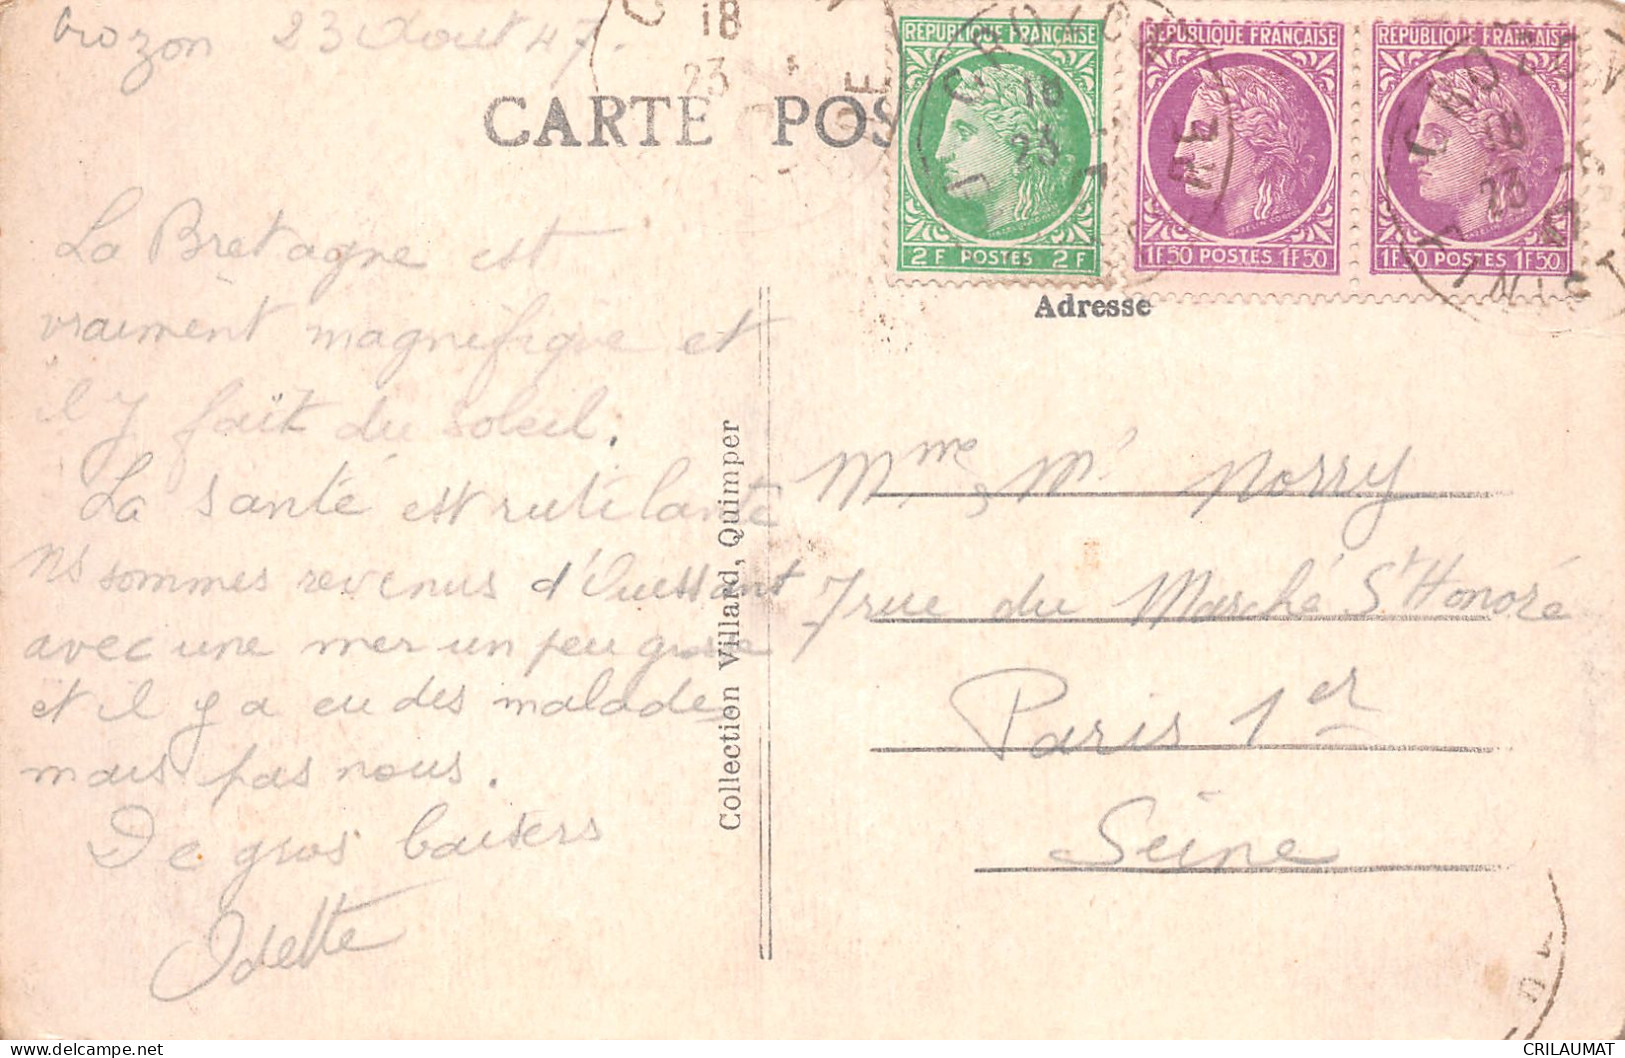 Crozon 23 Août 47.
CARTE POS
RÉPUBLIQUE FRANÇAISE
2F POSTES 2F
RÉPUBLIQUE FRANÇAISE
1F50 POSTES 1F50
RÉPUBLIQUE FRANÇAISE
1F50 POSTES 1F50
CROZON
18
23
FINISTERE
Adresse
La Bretagne est
vraiment magnifique et
il y fait du soleil.
La santé est rutilante
Ns sommes revenus d'Ouessant
avec une mer un peu grosse
et il y a eu des malades
mais pas nous.
De gros baisers
Odette
Collection Villard, Quimper
Mme, Mr Norry
7 rue du Marché St Honoré
Paris 1er
Seine
CRILAUMAT